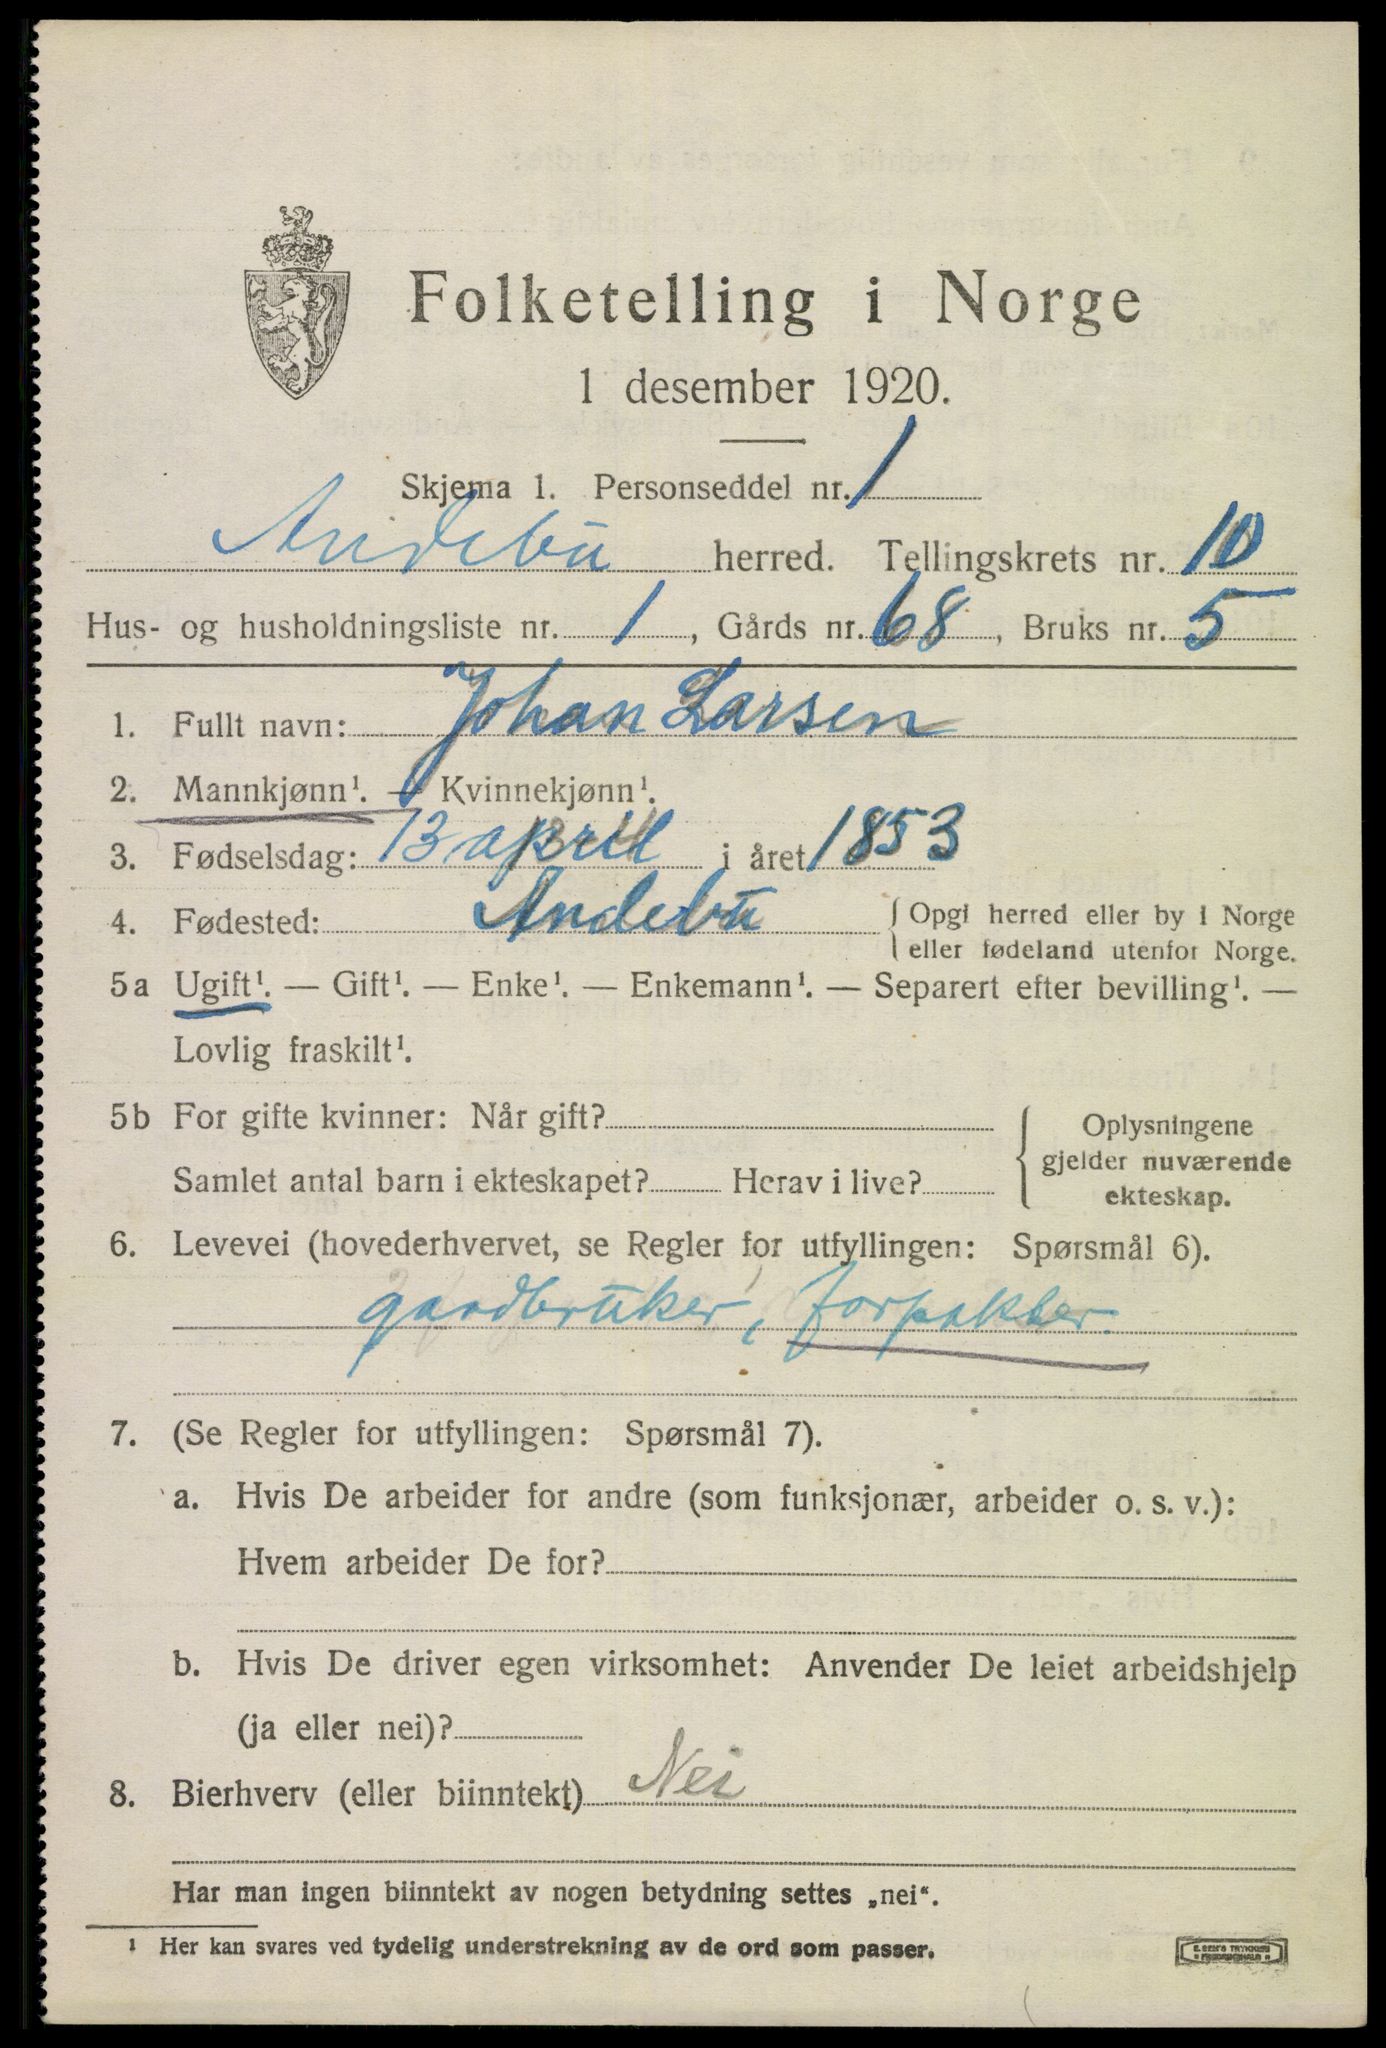 Folketelling i Norge
1 desember 1920.
Skjema 1. Personseddel nr. 1
Andebu herred. Tellingskrets nr. 10
Hus- og husholdningsliste nr. 1, Gårds nr. 68, Bruks nr. 5
1. Fullt navn: Johan Larsen
2. Mannkjønn¹. — Kvinnekjønn¹.
3. Fødselsdag: 13 april i året 1853
4. Fødested: Andebu {Opgi herred eller by i Norge
eller fødeland utenfor Norge.
5a Ugift¹. — Gift¹. — Enke¹. — Enkemann¹. — Separert efter bevilling¹. —
Lovlig fraskilt¹.
5b For gifte kvinner: Når gift? Oplysningene
gjelder nuværende
Samlet antal barn i ekteskapet? Herav i live?
ekteskap.
6. Levevei (hovederhvervet, se Regler for utfyllingen: Spørsmål 6).
gardbruker, forpakter
7. (Se Regler for utfyllingen: Spørsmål 7).
a. Hvis De arbeider for andre (som funksjonær, arbeider o. s. v.):
Hvem arbeider De for?
b. Hvis De driver egen virksomhet: Anvender De leiet arbeidshjelp
(ja eller nei)?
8. Bierhverv (eller biinntekt) Nei
Har man ingen biinntekt av nogen betydning settes „nei“.
¹ Her kan svares ved tydelig understrekning av de ord som passer.